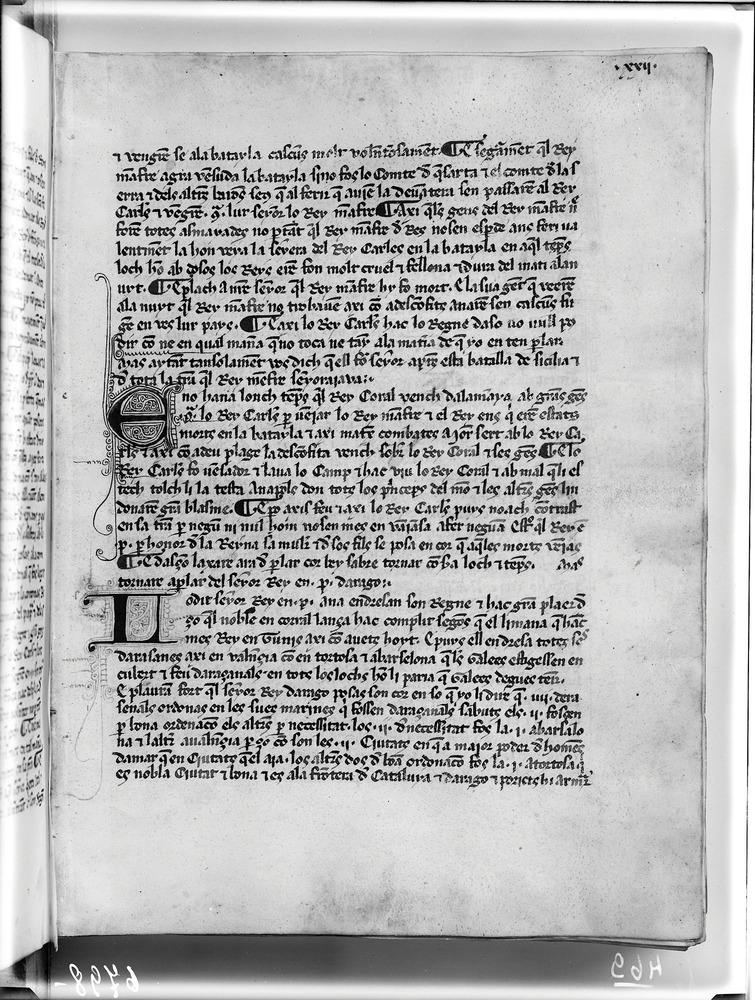 .xxij.
⁊ vengrē se ala batayla cascūs molt volūtosamēt. ¶ E segāmēt ql̄ Rey
māfre agra vēsuda la batayla sino fos lo Comte đ q̄sarta ⁊ el comte đla s
erra ⁊ dels altrēs barōs seus q̄ al ferir q̄ auiē la deuātera sen passarē al Rey
Carles ⁊ vengrē. 9ͣ. lur seyor lo Rey māfre ¶ Axi q̄ls gens del Rey māfre ñ
forē totes asmarades no p̄tāt ql̄ Rey māfre đ Res no sen esp̄de ans feri va
lentmēt la hon vera la seyera del Rey Carles en la batayla en aql̄ tēps
loch hō ab dosos los Reys erē fon molt cruel ⁊ fellona ⁊ dura del mati a lan
uyt. ¶ E plach a nr̄e seyor ql̄ Rey māfre hy fo mort. E la sua gēt q̄ veerē
ala nuyt ql̄ Rey māfre no trobauē axi cō a descōfits anarē sen cascūs fu
gē en vers lur pays. ¶ E axi lo Rey Carles hac lo Regne daso no vull yo
dir cō ne en qual māra q̄ no toca ne tāy ala matīa de q̄ yo en ten p̄lar
mas aytāt tan solamēt vos dich q̄ ell fo seyor apres esta batalla de sicilia ⁊
đ tota la tr̄ra ql̄ Rey māfre seyoraiaua:.
E no hauia lonch tēps ql̄ Rey Corali vench dalamaya ab grās gēs
9ͣ. lo Rey Carles p̄ vēiar lo Rey māfre ⁊ el Rey ens q̄ erē estats
morts en la batayla ⁊ axi matex combates a iorn sert ab lo Rey Ca
rles ⁊ axi cō a deu plagē la descōfita vench sobr̄ lo Rey Corali ⁊ ses gēs ¶ E lo
Rey Carles fo vēsador ⁊ laua lo Camp ⁊ hac viu lo Rey Corali ⁊ ab mal q̄ li es
tech tolch li la testa A napols don tots los p̄nceps del mō ⁊ les altrēs gēs lin
donarē grā blasme. ¶ E p̄o axis feu ⁊ axi lo Rey Carles puys no ach cōtrast
en sa tr̄ra p̄ negū ni nul hom no sen mes en vaiāsa afer negūa Esꝉ ql̄ Rey ē
.p. p̄ honor đ la Reyna sa mulr̄ ⁊ đ sos fils se posa en cor q̄ aqles morts vēias
¶ E dasço laxare ara đ p̄lar cor bey sabre tornar cō sa loch ⁊ tēps. Mas
tornare a plar del seyor Rey en .p. darago:.
L odit seyor Rey en .p. ana endresan son Regne ⁊ hac grā plaer đ
ço ql̄ noble en corral lança hac complit segōs q̄ el li mana q̄ hac
mes Rey en Tunis axi cō auets hoyt. E puys ell endresa totes ses
darasanes axi en valēçia cō en tortosa ⁊ a barselona q̄ les Galees estigessen en
cubert ⁊ feu daraçanals en tots los lochs hō li paria q̄ Galees degues tēir.
E plauria fort ql̄ seyor Rey darago posas son cor en so q̄ yo li dire q̄ .iiii. dera
senals ordonas en les sues marines q̄ fossen daraçanals sabuts els .ii. fossen
p̄ bona ordenacō els altrēs p̄ necessitat. los .ii. đ necessitat fos la .i. a barsalo
na ⁊ laltr̄ a valēcia p̄ ço cō son les .ii. Ciutats en q̄ a maior poder đ homēs
damar q̄ en Ciutats q̄ el aia. los altrēs dos đ bōa ordonacō fos la .i. a tortosa q̄
es nobla Ciutat ⁊ bona ⁊ es ala frōtera đ Cataluya ⁊ darago ⁊ porietshi armar
6798-
469